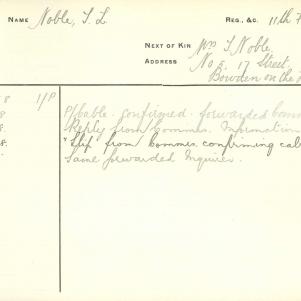 NAME Noble, T. L REG. &C. 11th F
NEXT OF KIN Mrs T Noble.
ADDRESS No 5. 17 Street,
Bowden on the
8 1/P P/bable. confirmed. forwarded
8 Reply from Commdt. Information
8. "Slip" from Commdt. confirming cab
8. Same forwarded Inquirer.